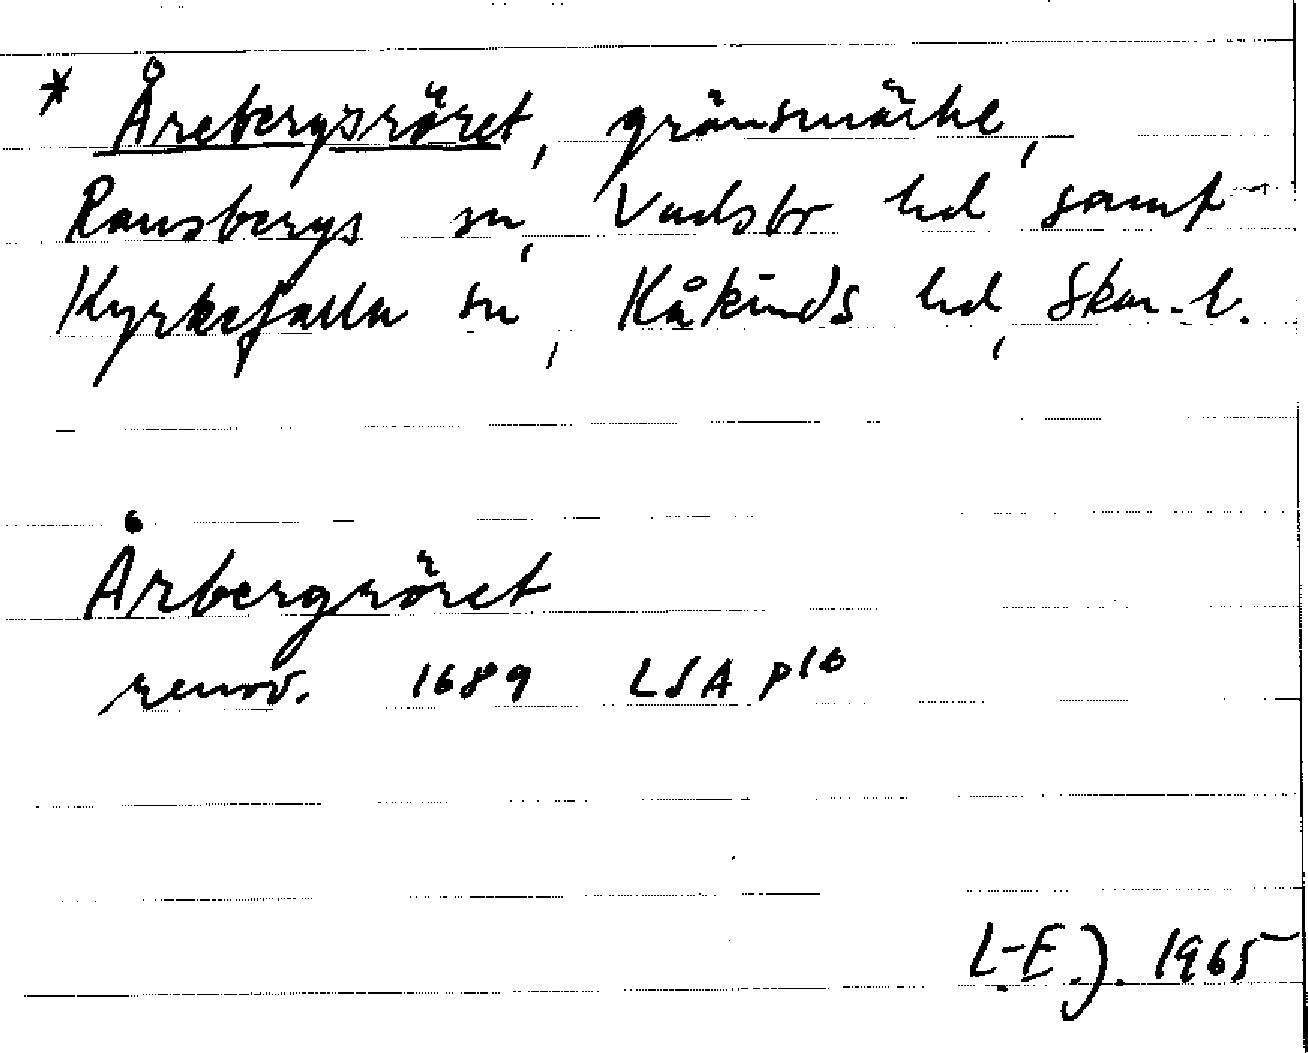 * Årebergsröret, gränsmärke,
Ransbergs sn, Vadsbo hd samt
Kyrkefalla sn, Kåkinds hd, Skar. l.
Årbergröret
renov. 1689 LSA P10
L-E.J. 1965